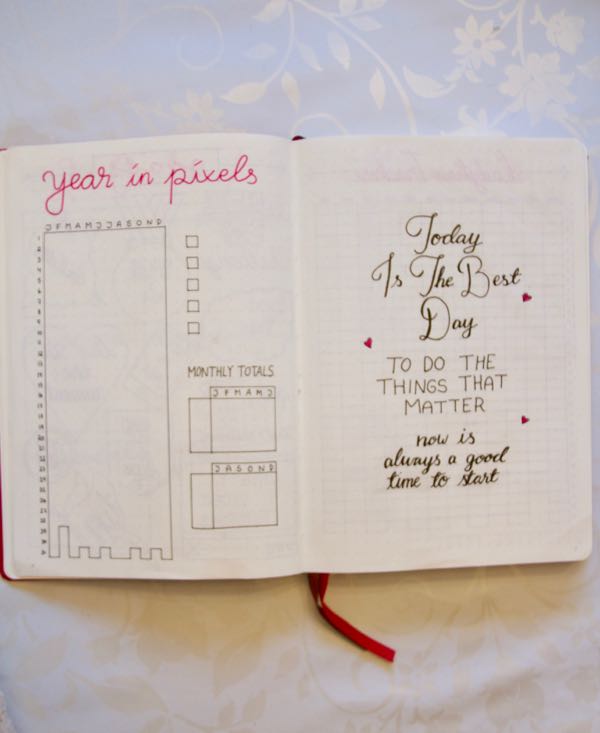 year in pixels
J F M A M J J A S O N D
1
2
3
4
5
6
7
8
9
10
11
12
13
14
15
16
17
18
19
20
21
22
23
24
25
26
27
28
29
30
31
MONTHLY TOTALS
J F M A M J
J A S O N D
Today
Is The Best
Day
TO DO THE
THINGS THAT
MATTER
now is
always a good
time to start